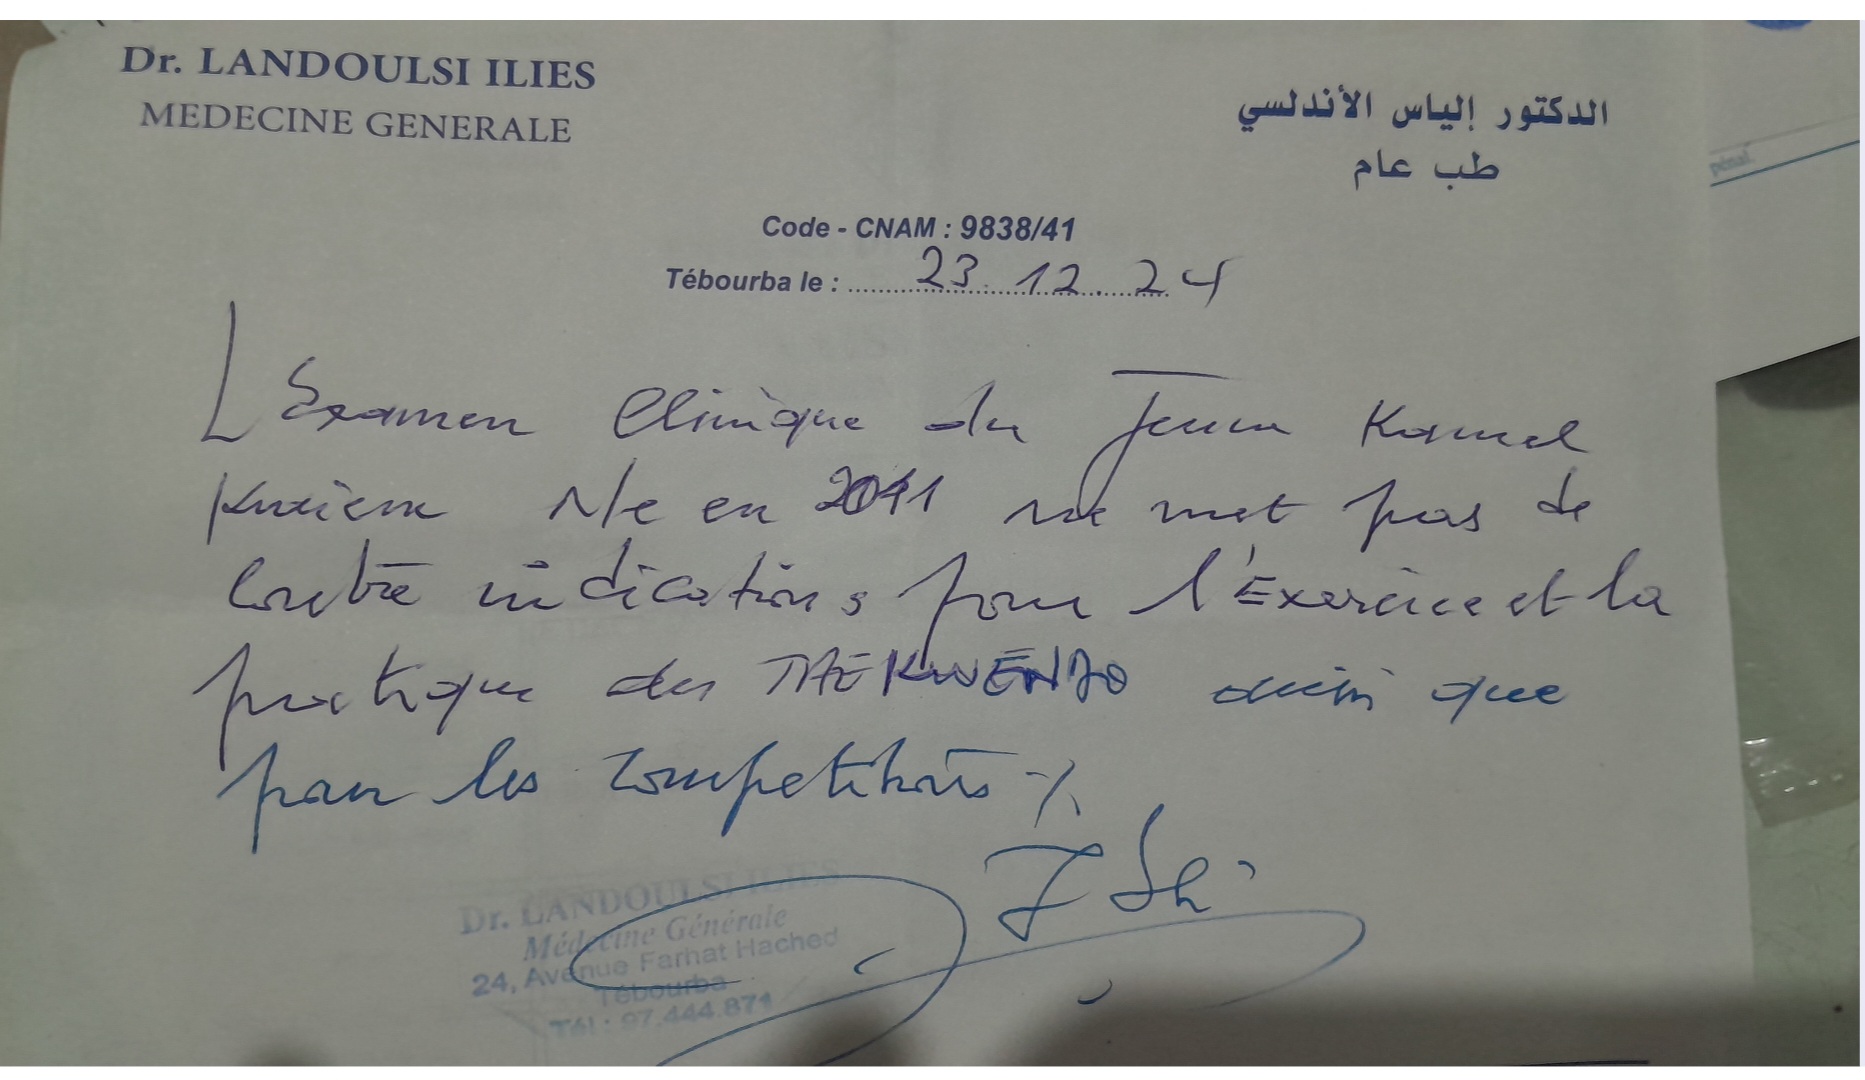 Dr. LANDOULSI ILIES
MEDECINE GENERALE
الدكتور إلياس الأندلسي
طب عام
pénal
Code - CNAM : 9838/41
Tébourba le : 23.12.24
L'Examen Clinique du Jeune Kamel
Né en 2011 ne met pas de
Contre indications pour l'Exercice et la
pratique du TAEKWENDO ainsi que
pour les competitions ./.
Dr. LANDOULSI ILIES
Médecine Générale
24, Avenue Farhat Hached
Tébourba
Tél : 97.444.871